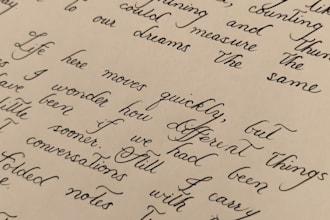 counting
could measure the
to our dreams the same
Life here moves quickly, but
I wonder how different things
have been if we had been
little sooner. Still I carry
conversations with
folded notes